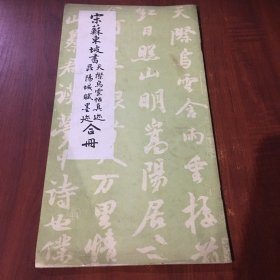 宋蘇東坡書天際烏雲帖真迹昆陽城賦墨迹合冊
天際烏雲含雨重樓前
紅日照山明嵩陽居士
万里情
詩也僕